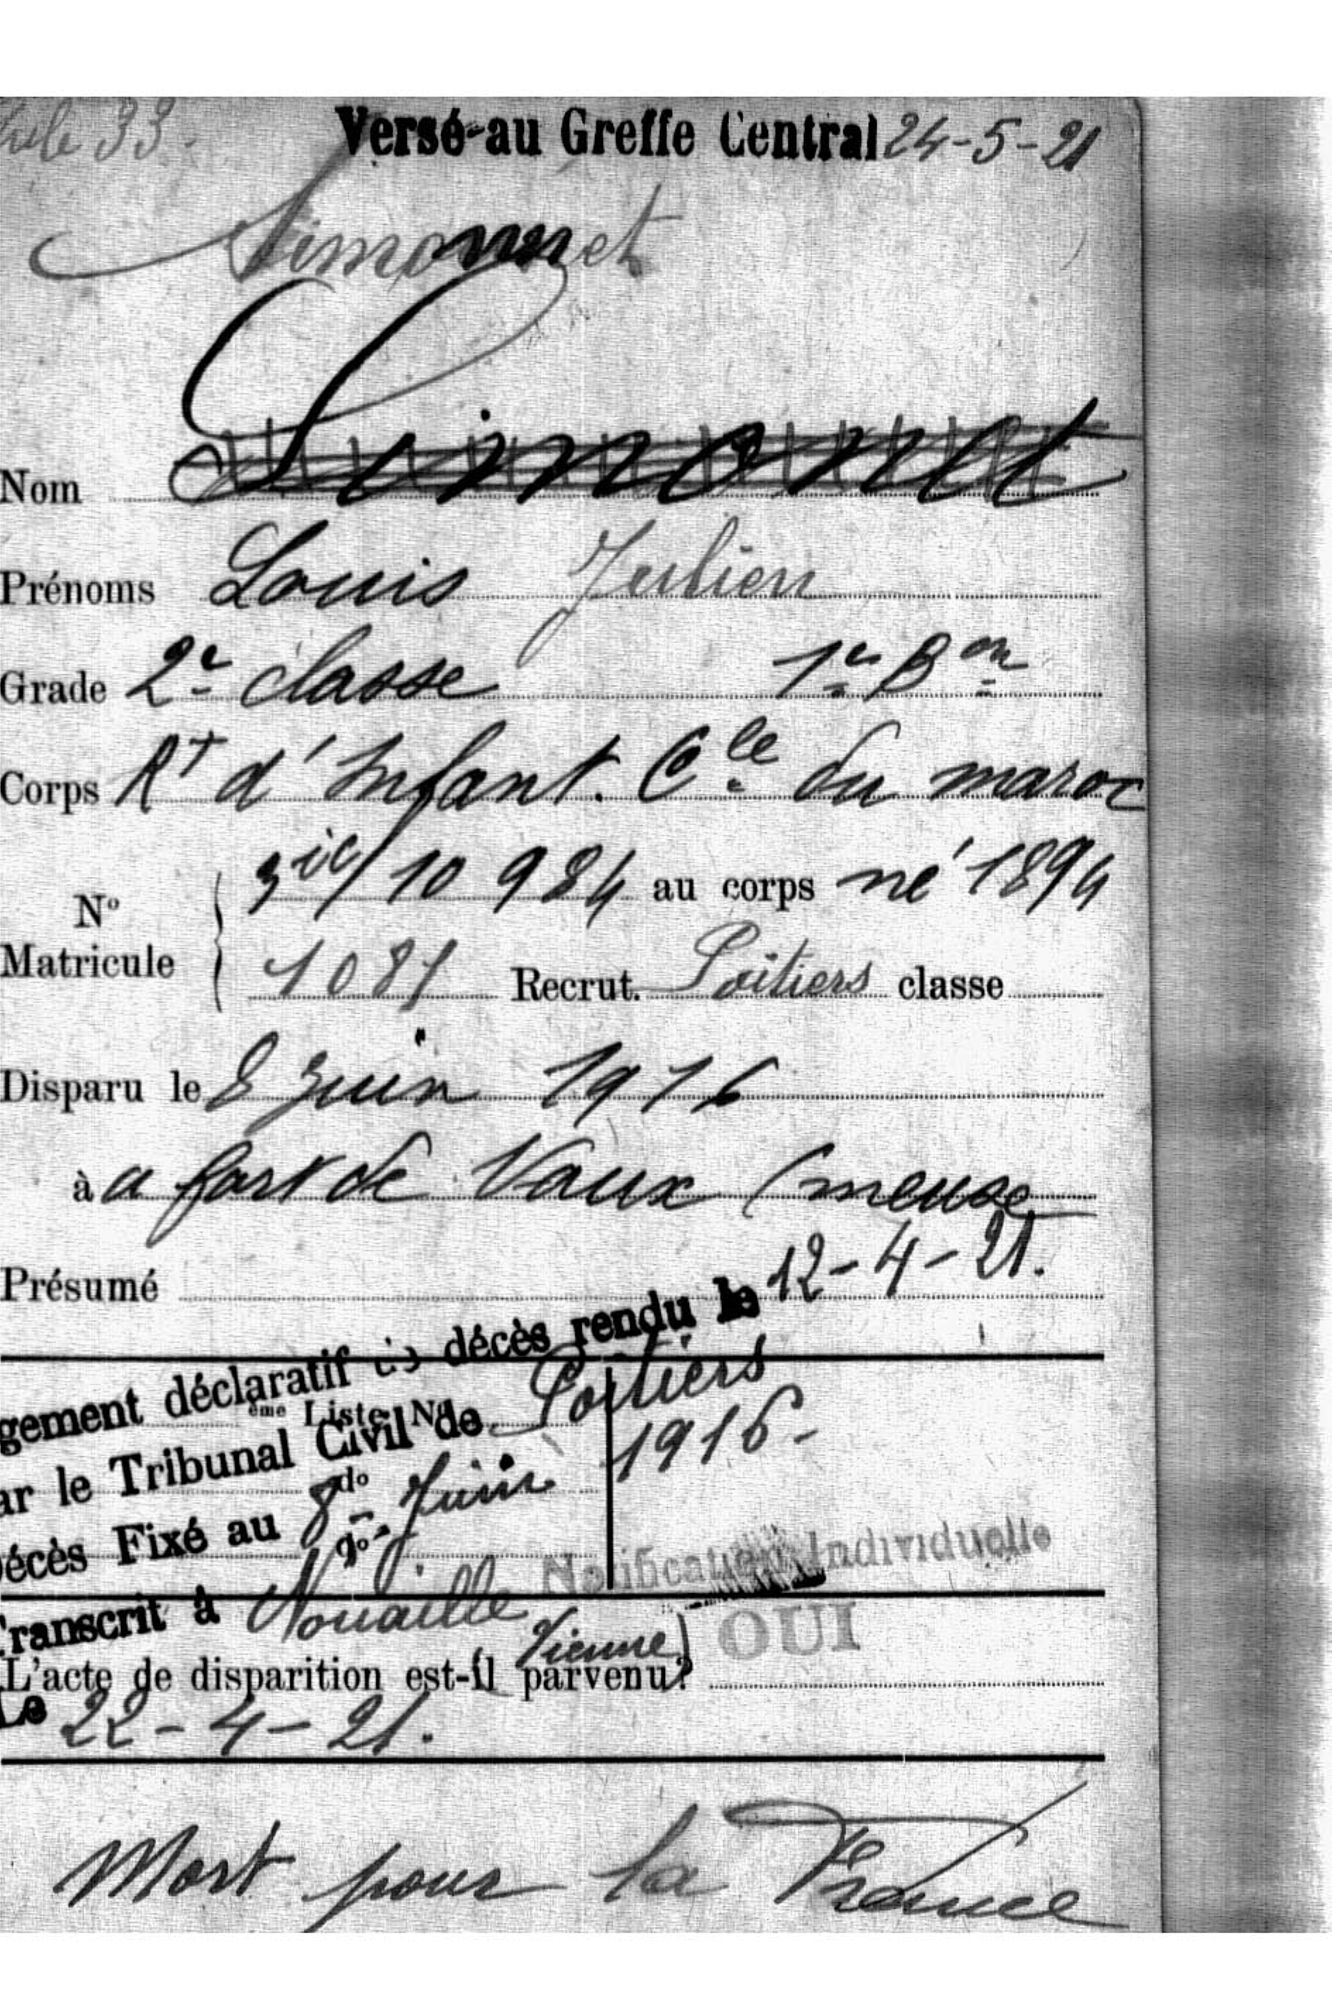 33.
Versé au Greffe Central 24-5-21
Simonnet
Nom Simonet
Prénoms Louis Julien
Grade 2e classe 1er Bon
Corps Rt d'Infant. Cle du maroc
No Matricule
3ic/10 984 au corps né 1894
1081 Recrut. Poitiers classe
Disparu le 8 Juin 1916
à a fort de Vaux (meuse
Présumé
gement déclaratif de décès rendu le 12-4-21.
eme Liste No
ar le Tribunal Civil de Poitiers
do
écès Fixé au 8 Juin 1916-
do
Notification Individuelle
Transcrit à Nouaillé
Vienne)
OUI
L'acte de disparition est-il parvenu?
Le 22-4-21.
Mort pour la France